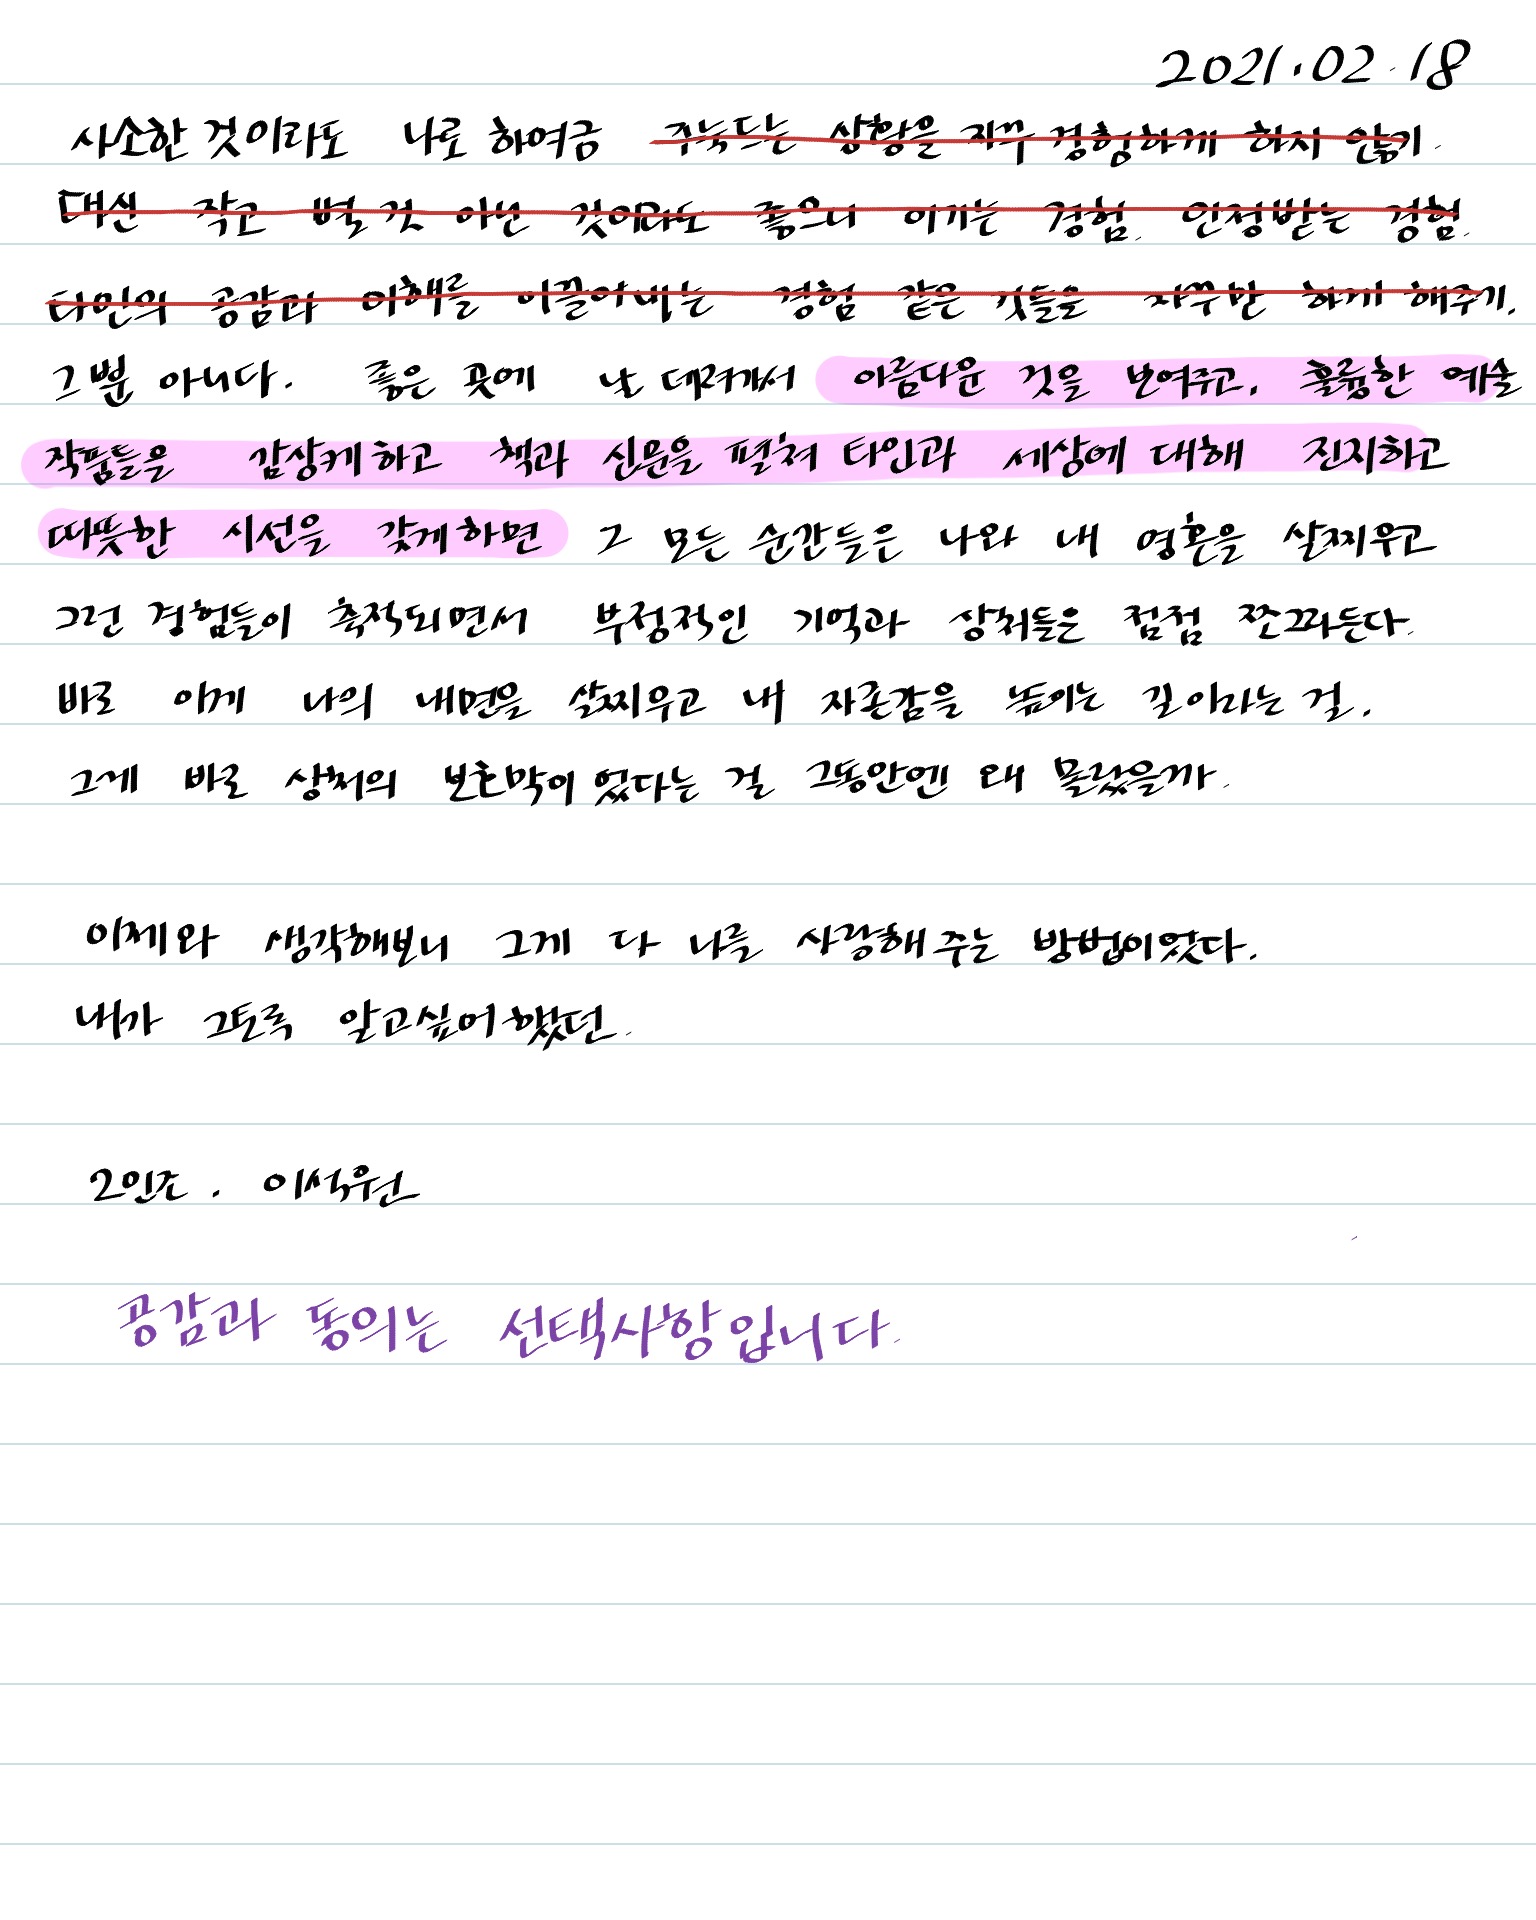 2021.02.18
사소한 것이라도 나로 하여금 주눅드는 상황을 자꾸 경험하게 하지 않기.
대신 작고 별 것 아닌 것이라도 좋으니 이기는 경험. 인정받는 경험.
타인의 공감과 이해를 이끌어내는 경험 같은 것들을 자꾸만 하게 해주기.
그 뿐 아니다. 좋은 곳에 날 데려가서 아름다운 것을 보여주고, 훌륭한 예술
작품들을 감상케하고 책과 신문을 펼쳐 타인과 세상에 대해 진지하고
따뜻한 시선을 갖게하면 그 모든 순간들은 나와 내 영혼을 살찌우고
그런 경험들이 축적되면서 부정적인 기억과 상처들은 점점 쪼그라든다.
바로 이게 나의 내면을 살찌우고 내 자존감을 높이는 길이라는 걸.
그게 바로 상처의 보호막이었다는 걸 그동안엔 왜 몰랐을까.
이제와 생각해보니 그게 다 나를 사랑해주는 방법이었다.
내가 그토록 알고싶어했던.
2인조. 이석원
공감과 동의는 선택사항입니다.